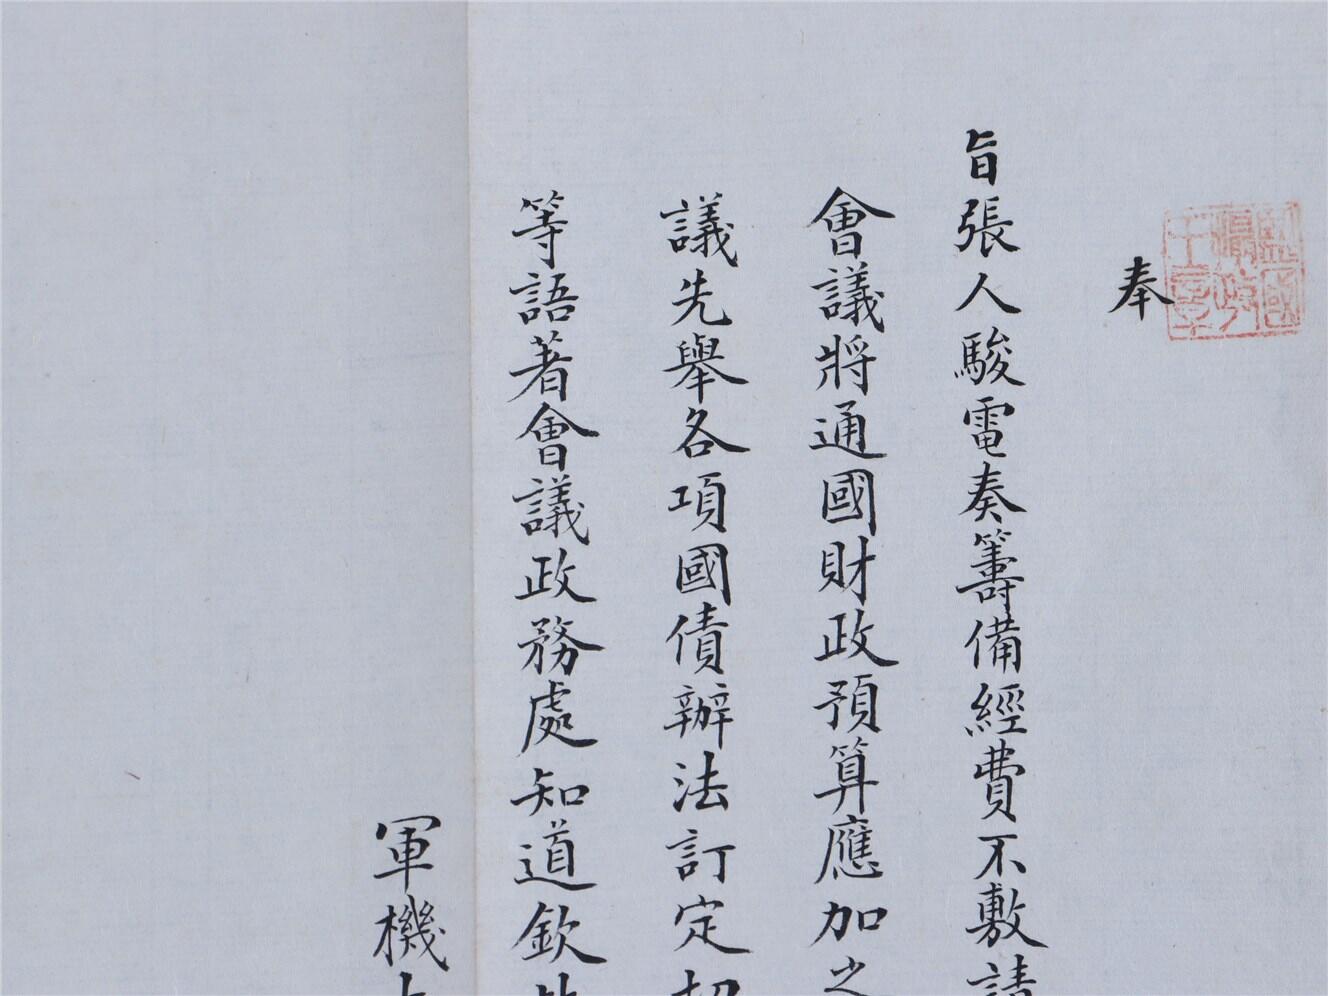 監國攝政王章
奉
旨張人駿電奏籌備經費不敷請
會議將通國財政預算應加之
議先舉各項國債辦法訂定
等語著會議政務處知道欽此
軍機大